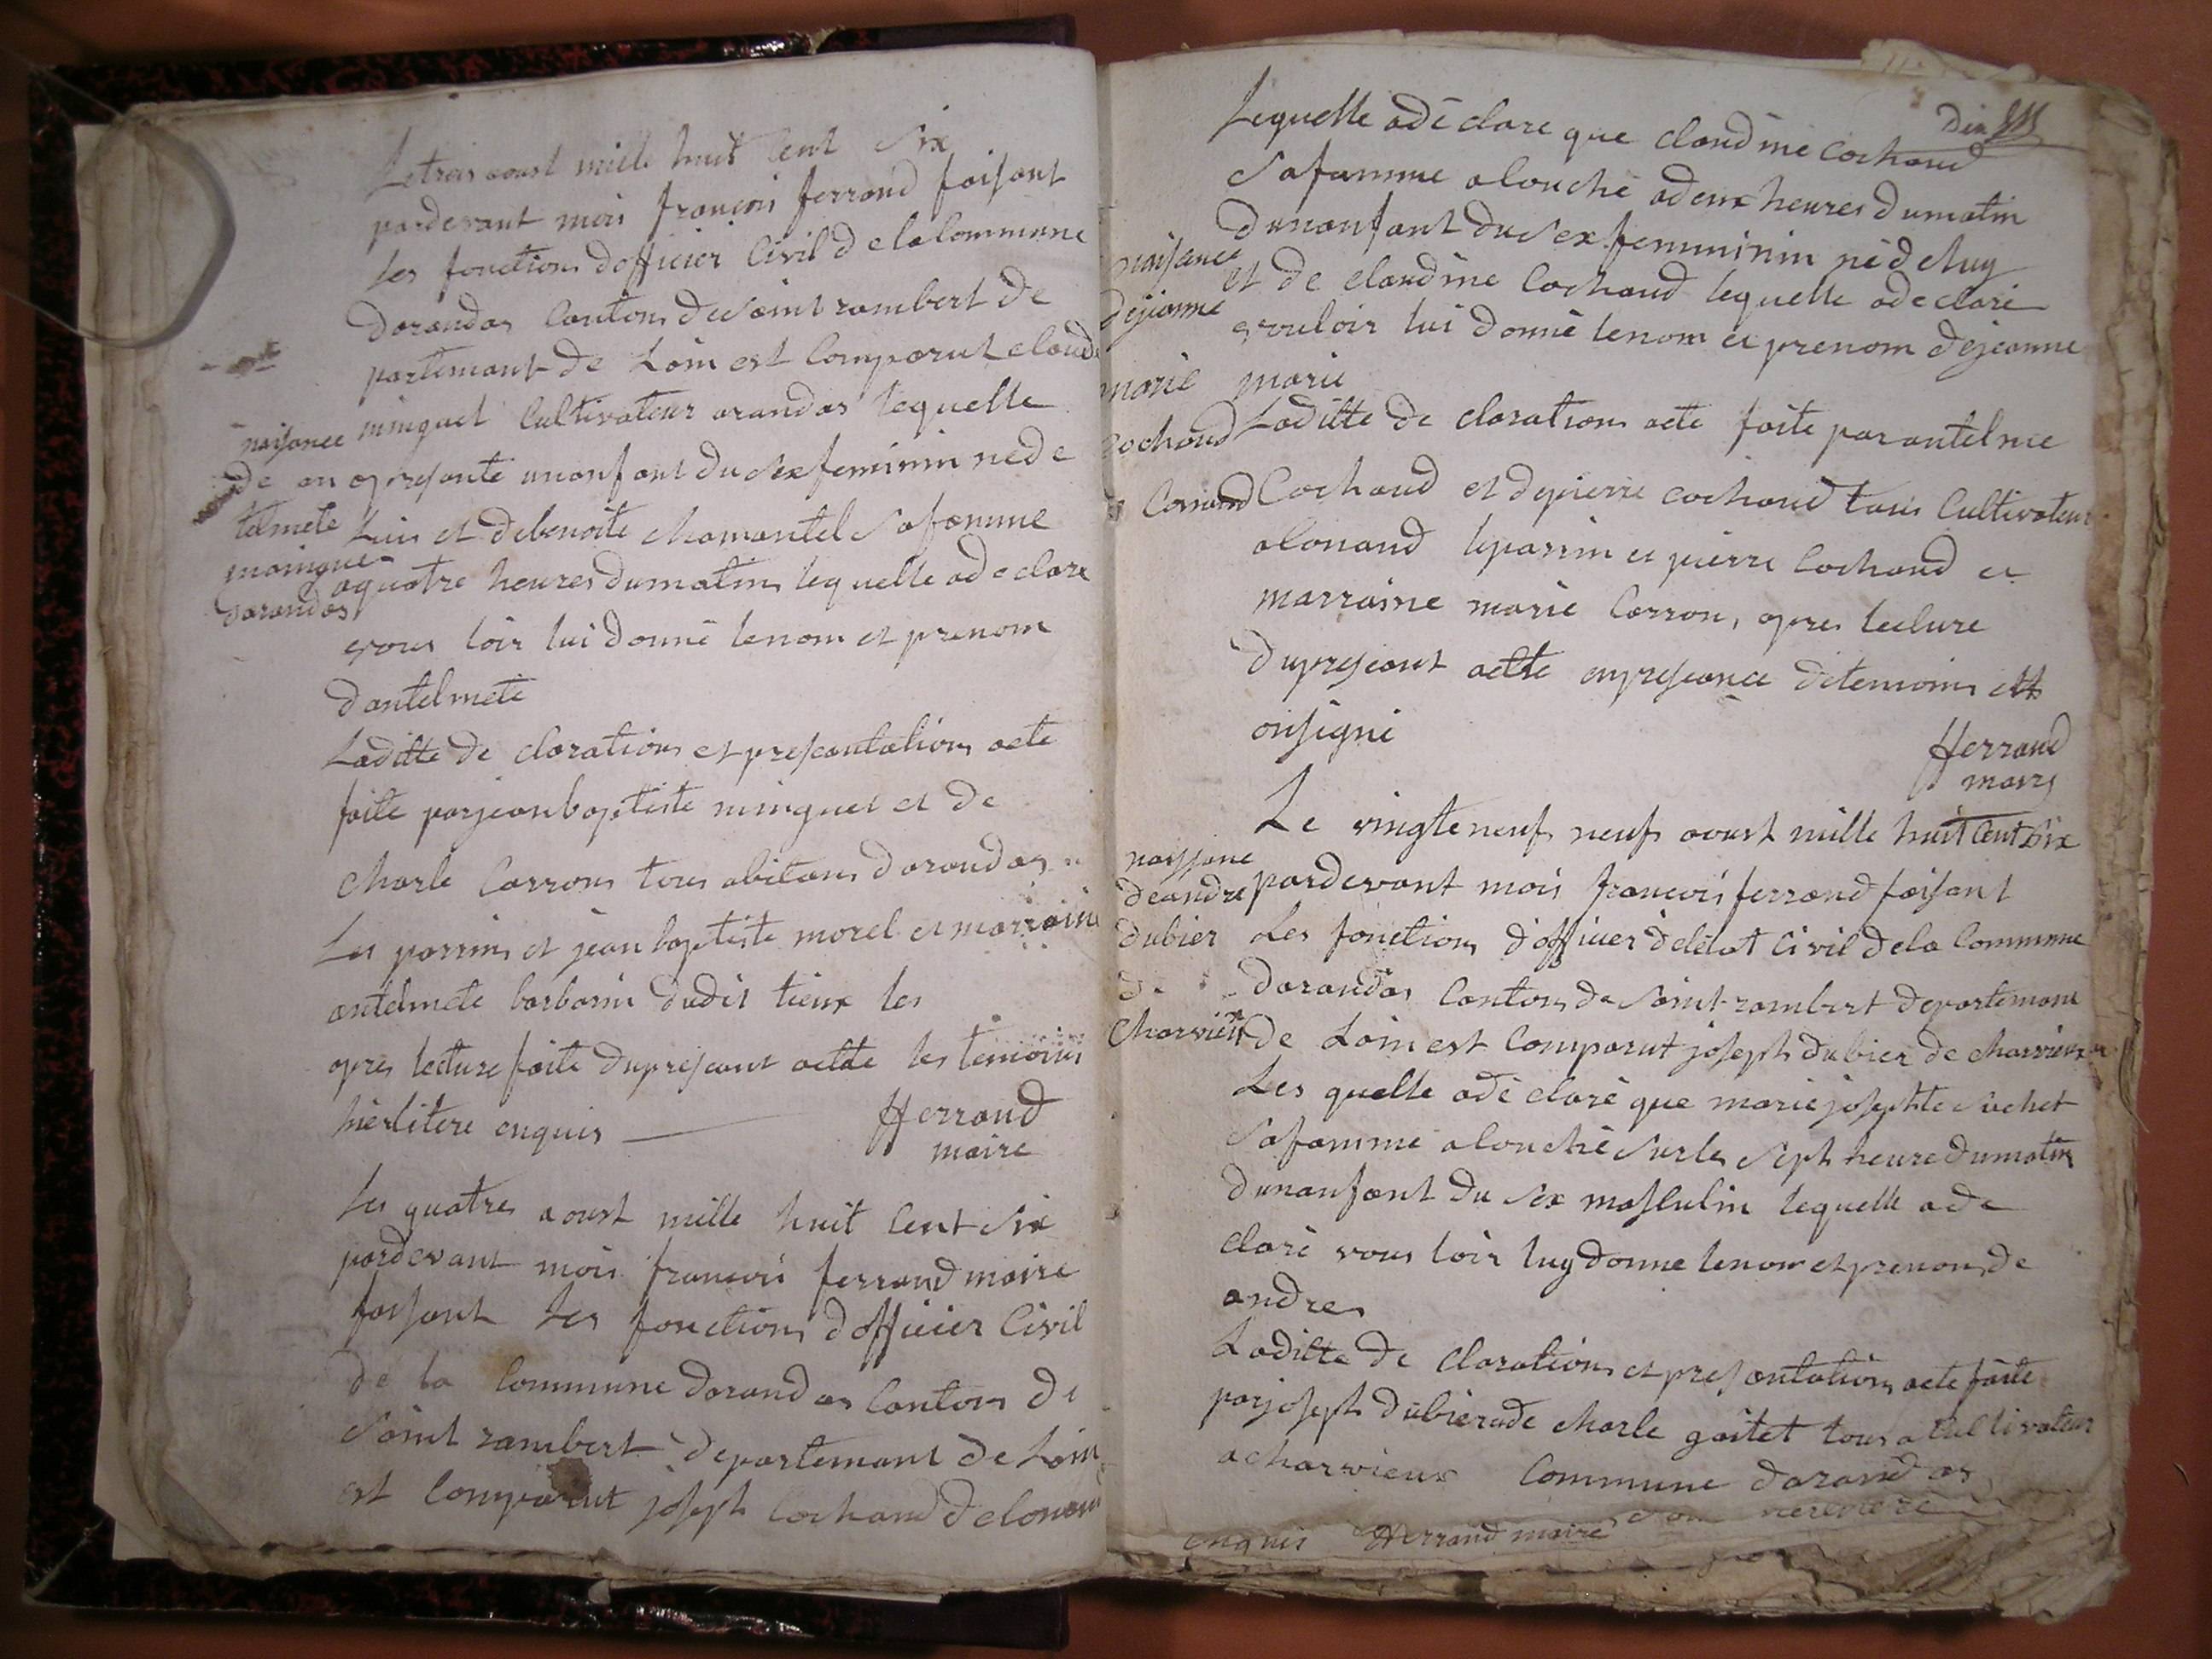 Le trois aoust mill huit Cent Six
pardevant mois françois ferrand faisant
les fonctions dofficier Civil de la Commune
darandas Cantons de saint rambert de
partemant de Loin est Comparut claude
minguet Cultivateur arandas lequelle
naisance
de an
telmete
mainguet
darandas
apresante un anfant du sex feminin né de
Luis et de benoite chamantel sa famme
a quatre heures du matins lequelle a declare
vous loir lui donné le nom et prenom
dantelmete
Laditte de clarations et presantations aete
faite par jean baptiste minguet et de
charle Carrons tous abitans darandas
Les parrins et jean baptiste morel et marraine
antelmete barbarin dudit lieux les
apres lecture faite du presant actte les temoins
enquis
fferrand
maire
Les quatres aoust mille huit Cent Six
pardevant mois françois ferrand maire
faisant les fonctions dofficier Civil
de la Commune darandas Cantons de
saint rambert departemant de Loin
est Comparut joseph Cochand de Conand
dix
Lequelle a dé clare que claudine Cochand
sa famme a Couché a deux heures du matin
dun anfant du sex femminin né de luy
et de claudine Cochand lequelle a declaré
vouloir lui donné le nom et prenom de jeanne
marie
naisance
de jeanne
marie
Cochand
Conand
Laditte de clarations aete faite par antelme
Cochand et de pierre Cochand tous Cultivateur
a Conand le parrin et pierre Cochand et
marraine marie Carron, apres lecture
du presant actte en presance de temoins
on signé
fferrand
maire
Le vingte neuf neuf aoust mille huit Cent Six
pardevant mois françois ferrand faisant
Les fonctions dofficier de létat Civil de la Commune
darandas Cantons de saint rambert departemant
de Loin est Comparut joseph dubier de charvieux
naissance
de andre
dubier
de
charvieux
Les quelle a dé claré que marie josephte suchet
sa famme a Couché sur les sept heure du matin
dun anfant du sex masculin lequelle a de
claré vous loir luy donne le nom et prenom de
andre
Laditte de clarations et presantations aete faite
par joseph dubier et de charle gaitet tous Cultivateur
a charvieux Commune darandas
enquis fferrand maire